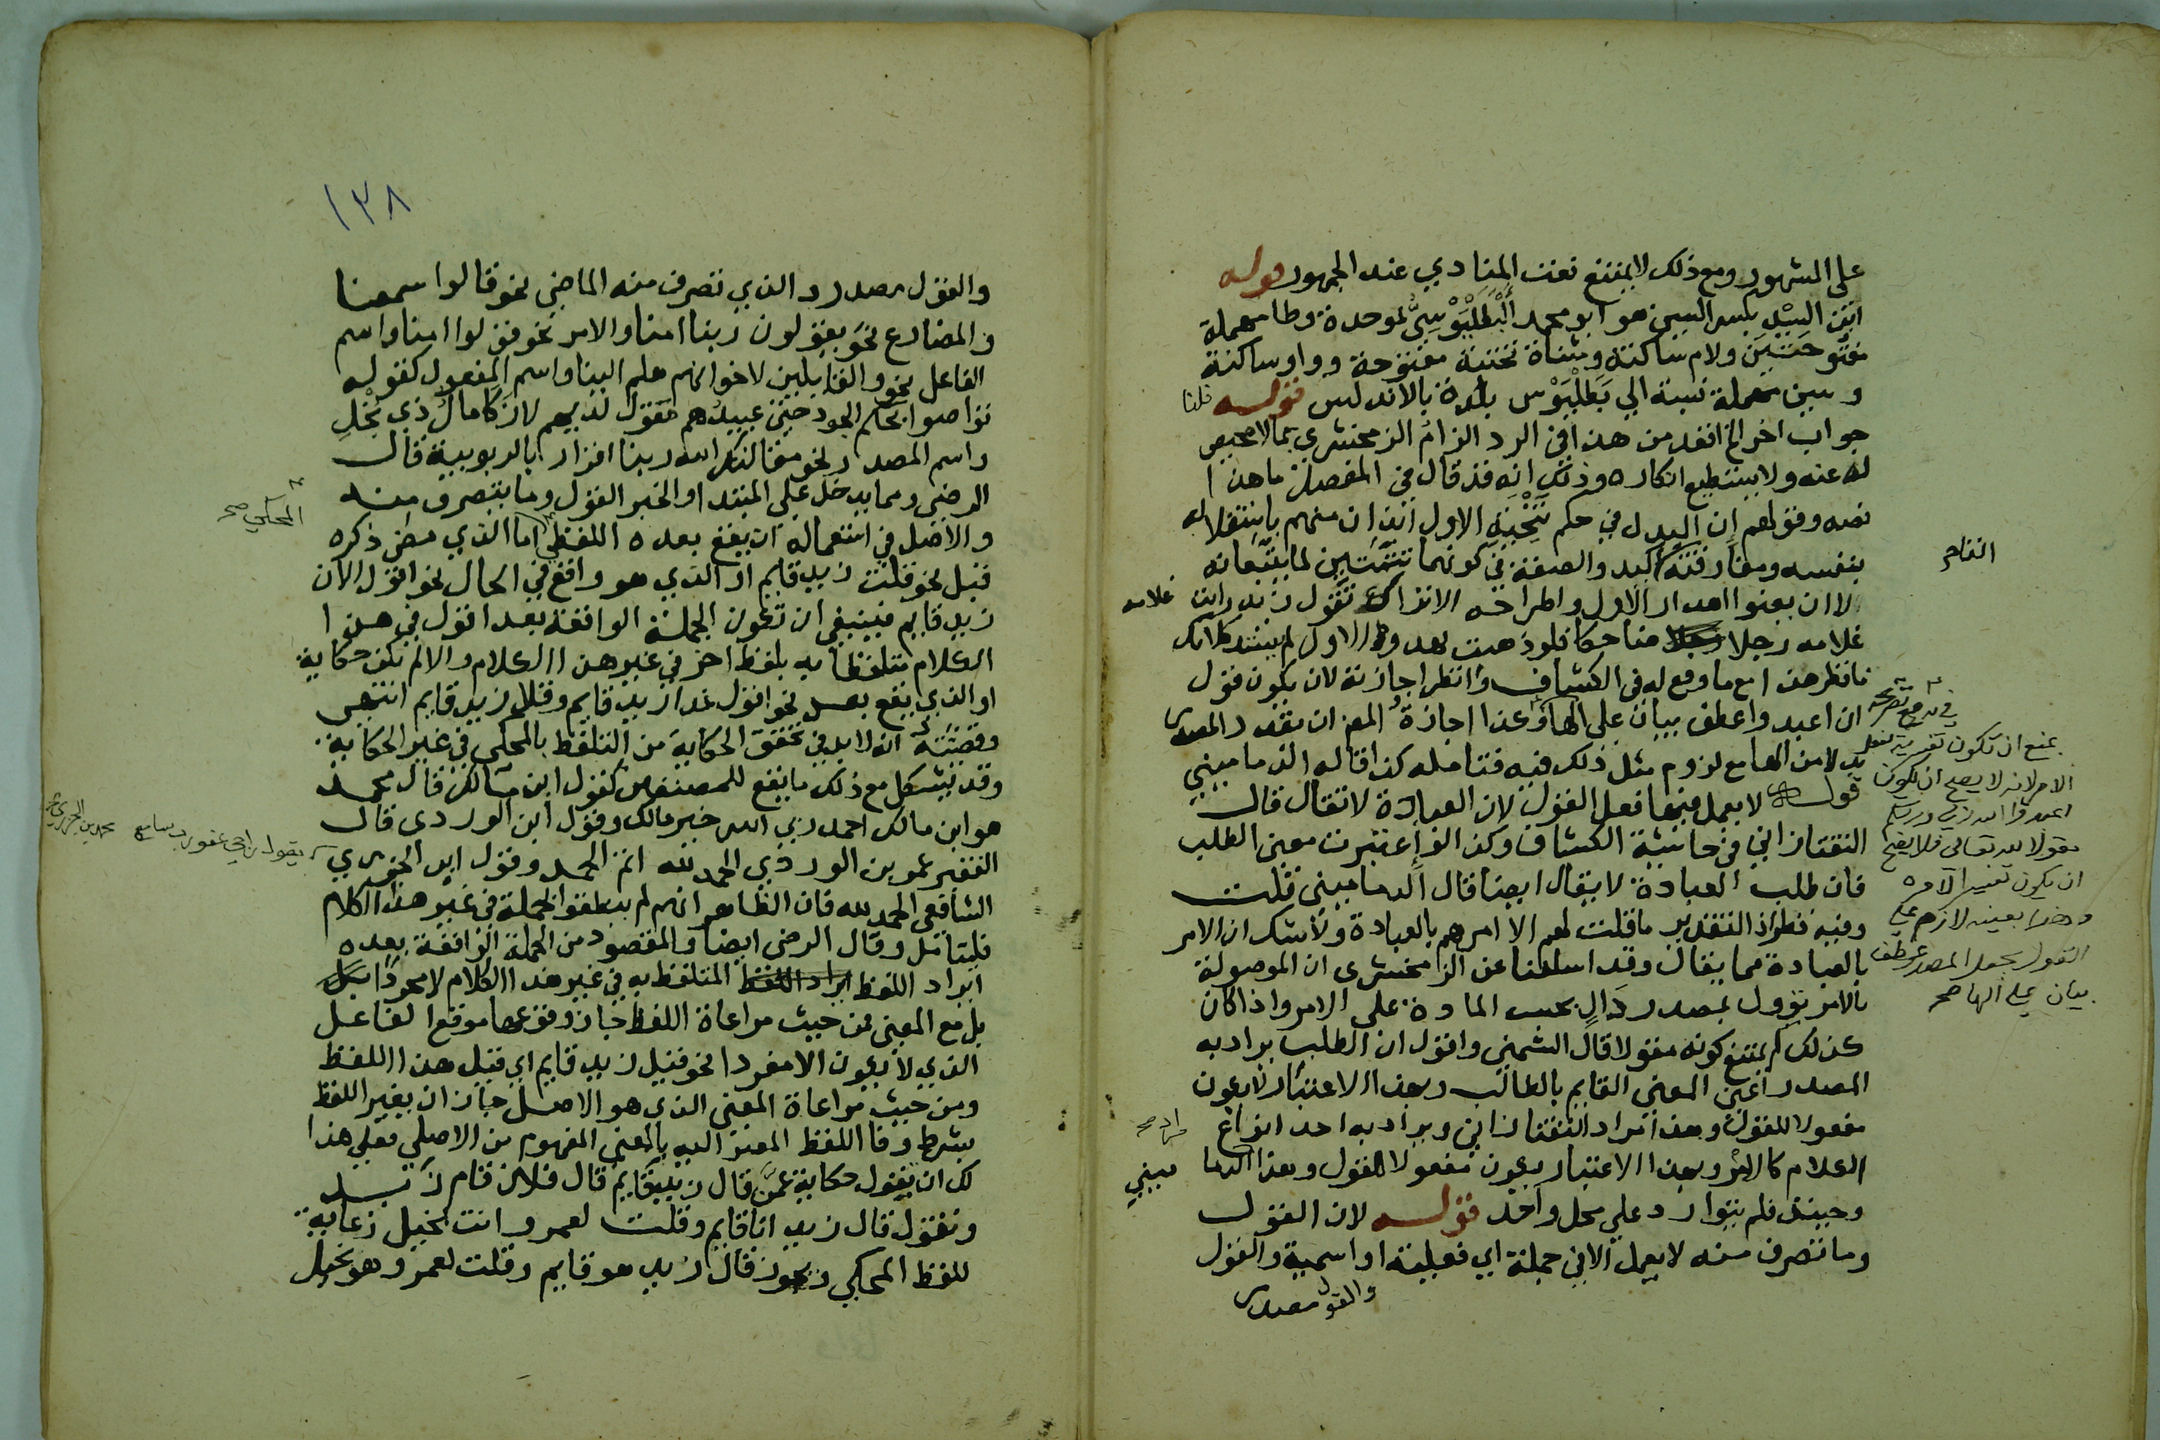 على المشهور ومع ذلك لا يمتنع نعت المنادي عند الجمهور قوله
ابن السيد بكسر السين هو ابو محمد البَطَلْيَوْسِيُّ بموحدة وطا مهملة
مفتوحتين ولام ساكنة ومثناة تحتية مفتوحة وواو ساكنة
وسين مهملة نسبة الي بَطَلْيَوْس بلدة بالاندلس قوله قلنا
جواب اخر الخ اقعد من هذا في الرد الزام الزمخشري بما لا محيص
له عنه ولا يستطيع انكاره وذلك انه قد قال في المفصل ما هذا
نصه وقولهم ان البدل في حكم تنحية الاول ايذان منهم باستقلاله
بنفسه ومفارقته التاكيد والصفة في كونهما تتمتين لما يتبعانه
لا ان يعنوا اهدار الاول واطراحه الا تراك تقول زيد رايت غلامه
غلامه رجلا صالحا فلو ذهبت تهدر الاول لم يستد كلامك
فانظر هذا مع ما وقع له في الكشاف وانظر اجازته لان يكون قول
ان اعبدوا عطف بيان علي الهاء
بدلا من الها مع لزوم مثل ذلك فيه فتامله كذا قاله الدماميني
قوله لا يعمل فيها فعل القول لان العبادة لا تقال قال
التفتازاني في حاشية الكشاف وكذا لو اعتبرت معنى الطلب
فان طلب العبادة لا يقال ايضا قال الدماميني قلت
وفيه نظر اذ التقدير ما قلت لهم الا امرهم بالعبادة ولا شك ان الامر
بالعبادة مما يقال وقد اسلفنا عن الزمخشري ان الموصولة
بالامر تؤول بمصدر دال بحسب المادة على الامر واذا كان
كذلك لم يمتنع كونه مقولا قال الشمني واقول ان الطلب يراد به
المصدر اعني المعنى القايم بالطالب وبهذا الاعتبار لا يكون
مفعولا للقول وهذا مراد التفتازاني ويراد به احد انواع
الكلام كالامر وبهذا الاعتبار يكون مفعولا للقول وهذا مراد الدماميني
وحينئذ فلم يتواردا علي محل واحد قوله لان القول
وما تصرف منه لا يعمل الا في جملة اي فعلية او اسمية والقول
والقول مصدر
يمنع ان تكون تفسيرية لفعل
الامر لانه لا يصح ان يكون
اعبدوا الله ربي وربكم
مقولا لله تعالى فلا يصح
ان يكون تفسيرا لامره
وهذا بعينه لازم علي
القول بجعل المصدر عطف
بيان على الها صح
١٣٨
والقول مصدر والذي تصرف منه الماضي نحو قالوا سمعنا
والمضارع نحو يقولون ربنا امنا والامر نحو قولوا امنا واسم
الفاعل نحو والقايلين لاخوانهم هلم الينا واسم المفعول كقوله
تواصوا بحكم الجود حتى عبيدهم مقول لديهم لا زكا مال ذي بخل
واسم المصدر نحو مقالك الله ربنا اقرار بالربوبية قال
الرضى ومما يدخل علي المبتدا والخبر القول وما يتصرف منه
والاصل في استعماله ان يقع بعده اللفظ المحكي صح اما الذي مضى ذكره
قبل نحو قلت زيد قايم او الذي هو واقع في الحال نحو اقول الان
زيد قايم فينبغي ان تكون الجملة الواقعة بعد اقول في هذا
الكلام متلفظا به بلفظ اخر في غير هذا الكلام والا لم تكن حكاية
او الذي يقع بعد نحو اقول غدا زيد قايم وقل زيد قايم انتهى
وقضيته انه لا بد في تحقق الحكاية من التلفظ بالمحكي في غير الحكاية
وقد يشكل مع ذلك ما يقع للمصنفين كقول ابن مالك قال محمد
هو ابن مالك احمد ربي الله خير مالك وقول ابن الوردى قال
الفقير عمر بن الوردي الحمد لله اتم الحمد وقول ابن الجزري
يقول راجي عفو رب سامع محمد بن الجزري صح
الشافعي الحمد لله فان الظاهر انهم لم ينطقوا بالجملة في غير هذا الكلام
فليتامل وقال الرضى ايضا والمقصود من الجملة الواقعة بعده
ايراد اللفظ المتلفظ به في غير هذا الكلام لا مجردا
بل مع المعنى فمن حيث مراعاة اللفظ جاز وقوعها موقع الفاعل
الذي لا يكون الا مفردا نحو قيل زيد قايم اي قيل هذا اللفظ
ومن حيث مراعاة المعنى الذي هو الاصل جاز ان يغير اللفظ
بشرط وفا اللفظ المغير اليه بالمعنى المفهوم من الاصلي فعلي هذا
لك ان تقول حكاية عمن قال زيد قايم قال فلان قام زيد
وتقول قال زيد انا قايم وقلت لعمرو انت بخيل رعاية
للفظ المحكي ويجوز قال زيد هو قايم وقلت لعمرو هو بخيل